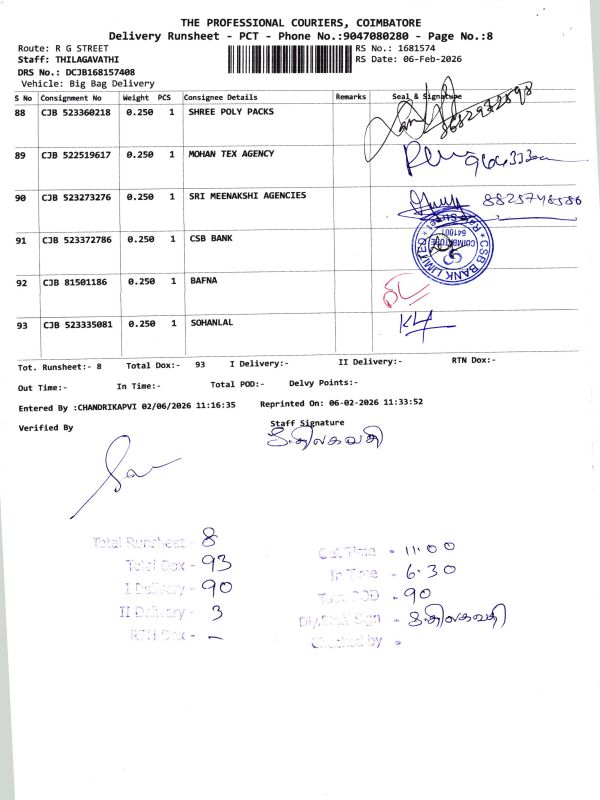 THE PROFESSIONAL COURIERS, COIMBATORE
Delivery Runsheet - PCT - Phone No.:9047080280 - Page No.:8
Route: R G STREET
RS No.: 1681574
Staff: THILAGAVATHI
RS Date: 06-Feb-2026
DRS No.: DCJB168157408
Vehicle: Big Bag Delivery
S No Consignment No Weight PCS Consignee Details Remarks Seal & Signature
88 CJB 523360218 0.250 1 SHREE POLY PACKS
89 CJB 522519617 0.250 1 MOHAN TEX AGENCY
90 CJB 523273276 0.250 1 SRI MEENAKSHI AGENCIES
91 CJB 523372786 0.250 1 CSB BANK
CSB BANK LIMITED
COIMBATORE
641001
92 CJB 81501186 0.250 1 BAFNA
93 CJB 523335081 0.250 1 SOHANLAL
Tot. Runsheet:- 8 Total Dox:- 93 I Delivery:- II Delivery:- RTN Dox:-
Out Time:- In Time:- Total POD:- Delvy Points:-
Entered By :CHANDRIKAPVI 02/06/2026 11:16:35 Reprinted On: 06-02-2026 11:33:52
Verified By
Staff Signature
த.திலகவதி
Total Runsheet - 8
Total Dox - 93
I Delivery - 90
II Delivery - 3
RTN Dox - -
Out Time - 11:00
In Time - 6.30
Total POD - 90
Sign - த.திலகவதி
Checked by -